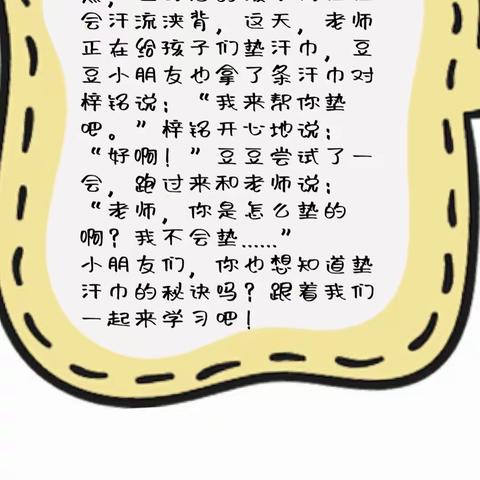 会汗流浃背，这天，老师
正在给孩子们垫汗巾，豆
豆小朋友也拿了条汗巾对
梓铭说：“我来帮你垫
吧。”梓铭开心地说：
“好啊！”豆豆尝试了一
会，跑过来和老师说：
“老师，你是怎么垫的
啊？我不会垫……”
小朋友们，你也想知道垫
汗巾的秘诀吗？跟着我们
一起来学习吧！